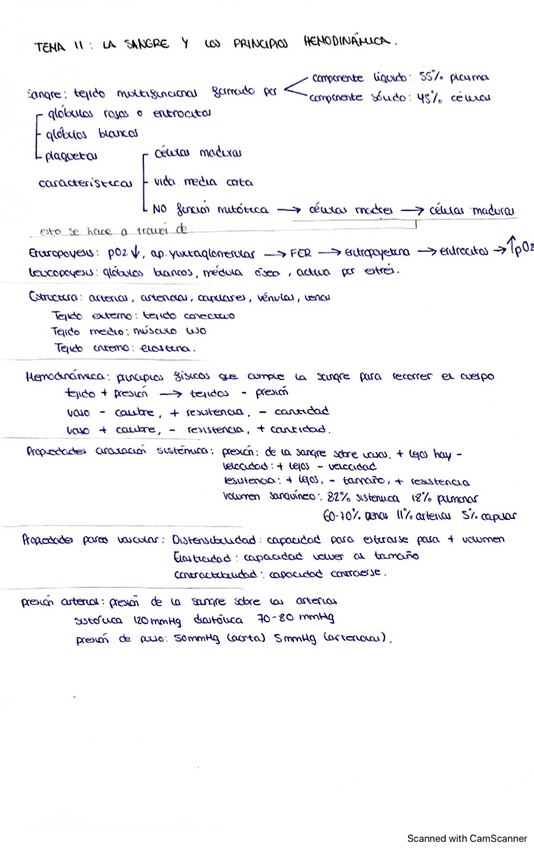 TEMA 11: LA SANGRE Y LOS PRINCIPIOS HEMODINÁMICA.
Sangre: tejido multifuncional formado por
componente líquido: 55% plasma
componente sólido: 45% células
glóbulos rojos o eritrocitos
glóbulos blancos
plaquetas
características
células maduras
vida media corta
NO función mitótica → células madres → células maduras
esto se hace a través de
Eritropoyesis: pO2 ↓, ap. yuxtaglomerular → FER → eritropoyetina → eritrocitos → ↑pO2
Leucopoyesis: glóbulos blancos, médula ósea, activa por estrés.
Estructura: arterias, arteriolas, capilares, vénulas, venas
Tejido externo: tejido conectivo
Tejido medio: músculo liso
Tejido interno: elastina.
Hemodinámica: principios físicos que cumple la sangre para recorrer el cuerpo
tejido + presión → tejidos - presión
vaso - calibre, + resistencia, - cantidad
vaso + calibre, - resistencia, + cantidad.
Propiedades circulación sistémica: presión: de la sangre sobre vasos, + lejos hay -
velocidad: + lejos - velocidad
resistencia: + lejos, - tamaño, + resistencia
volumen sanguíneo: 82% sistémica 18% pulmonar
60-70% venas 11% arterias 5% capilar
Propiedades pared vascular: Distensibilidad: capacidad para estirarse para + volumen
Elasticidad: capacidad volver al tamaño
contractibilidad: capacidad contraerse.
presión arterial: presión de la sangre sobre las arterias
sistólica 120 mmHg diastólica 70-80 mmHg
presión de pulso: 50mmHg (aorta) 5mmHg (arteriolas).
Scanned with CamScanner